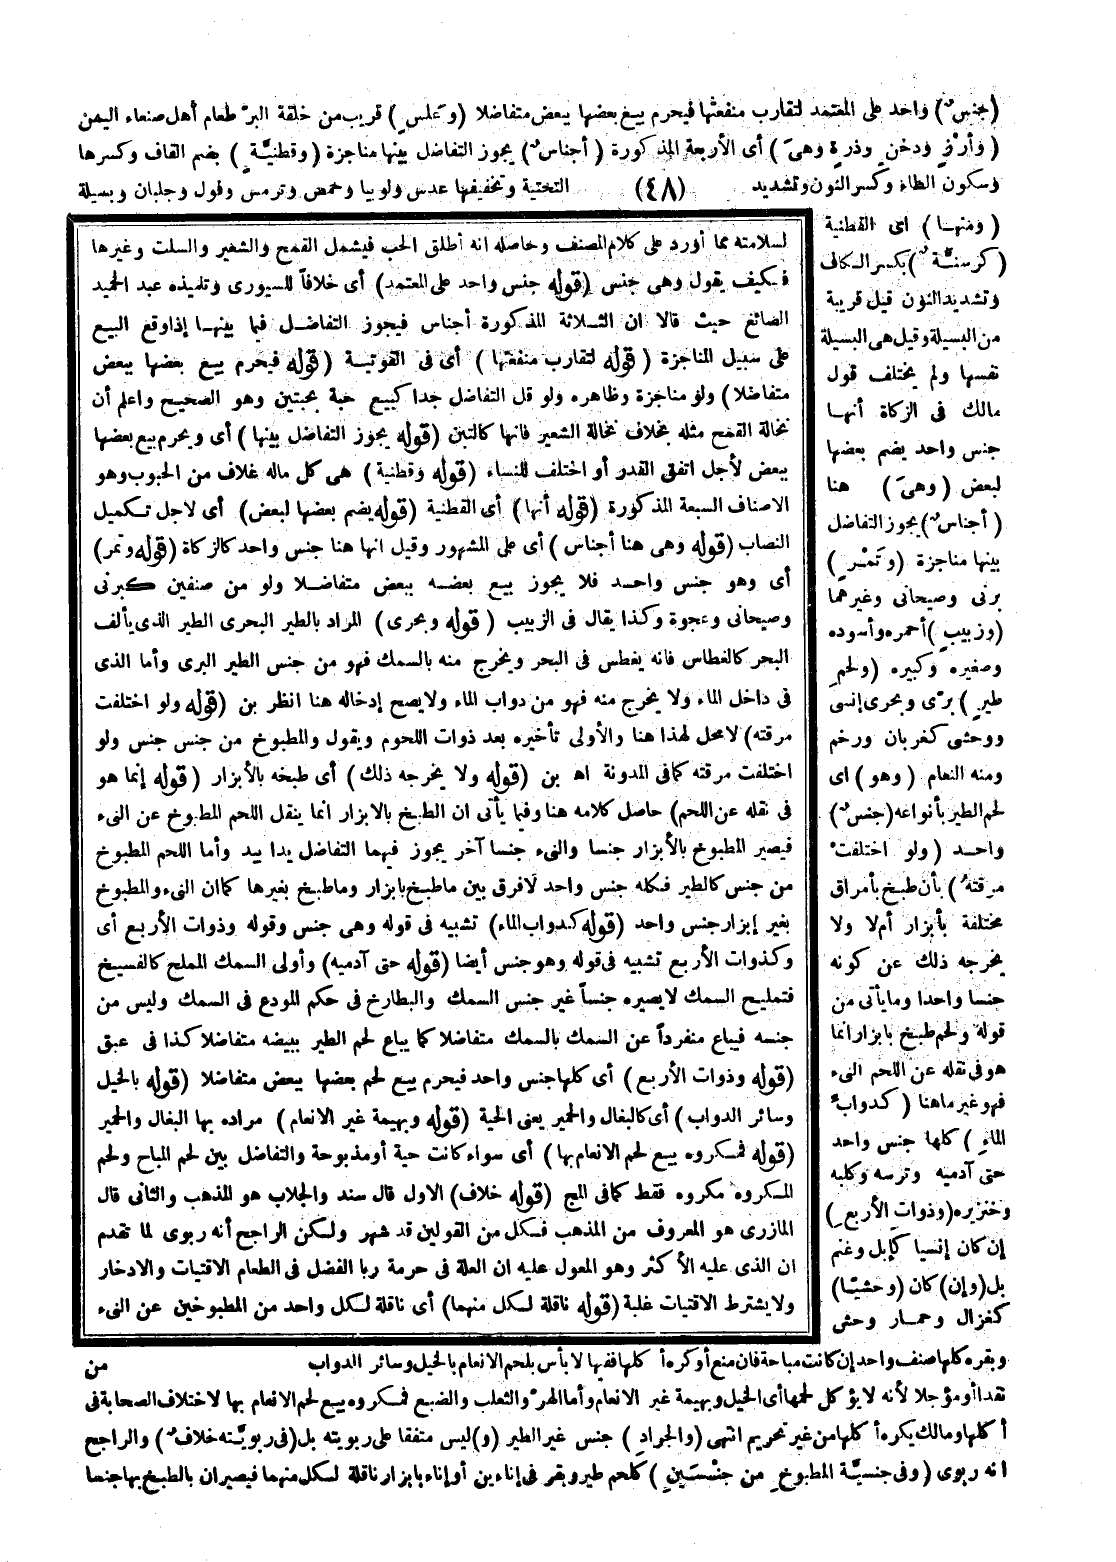 (جنس) واحد على المعتمد لتقارب منفعتها فيحرم بيع بعضها ببعض متفاضلا (وعلس) قريب من خلقة البر طعام أهل صنعاء اليمن
(وأرز ودخن وذرة وهى) أى الأربعة المذكورة (أجناس) يجوز التفاضل بينها مناجزة (وقطنية) بضم القاف وكسرها
وسكون الطاء وكسر النون وتشديد (٤٨) التحتية وتخفيفها عدس ولوبيا وحمص وترمس وفول وجلبان وبسيلة
(ومنها) اى القطنية
(كرسنة) بكسر الكاف
وتشديد النون قيل قريبة
من البسيلة وقيل هى البسيلة
نفسها ولم يختلف قول
مالك فى الزكاة أنها
جنس واحد يضم بعضها
لبعض (وهى) هنا
(أجناس) يجوز التفاضل
بينها مناجزة (وتمر)
برنى وصيحانى وغيرهما
(وزبيب) أحمره وأسوده
وصغيره وكبيره (ولحم
طير) برى وبحرى إنسى
ووحشى كغربان ورخم
ومنه النعام (وهو) اى
لحم الطير بأنواعه (جنس)
واحد (ولو اختلفت
مرقته) بأن طبخ بأمراق
مختلفة بأبزار أم لا ولا
يخرجه ذلك عن كونه
جنسا واحدا وما يأتى من
قوله ولحم طبخ بابزار انما
هو فى نقله عن اللحم النىء
فهو غير ما هنا (كدواب
الماء) كلها جنس واحد
حتى آدميه وترسه وكلبه
وخنزيره (وذوات الأربع)
إن كان إنسيا كإبل وغنم
بل (وإن) كان (وحشيا)
كغزال وحمار وحشى
لسلامته مما أورد على كلام المصنف وحاصله انه أطلق الحب فيشمل القمح والشعير والسلت وغيرها
فكيف يقول وهى جنس (قوله جنس واحد على المعتمد) أى خلافاً للسيورى وتلميذه عبد الحميد
الصائغ حيث قالا ان الثلاثة المذكورة أجناس فيجوز التفاضل فيما بينها إذا وقع البيع
على سبيل المناجزة (قوله لتقارب منفعتها) أى فى القوتية (قوله فيحرم بيع بعضها ببعض
متفاضلا) ولو مناجزة وظاهره ولو قل التفاضل جدا كبيع حبة بحبتين وهو الصحيح واعلم أن
نخالة القمح مثله بخلاف نخالة الشعير فانها كالتبن (قوله يجوز التفاضل بينها) أى ويحرم بيع بعضها
ببعض لأجل اتفق القدر أو اختلف للنساء (قوله وقطنية) هى كل ماله غلاف من الحبوب وهو
الاصناف السبعة المذكورة (قوله أنها) أى القطنية (قوله يضم بعضها لبعض) أى لاجل تكميل
النصاب (قوله وهى هنا أجناس) أى على المشهور وقيل انها هنا جنس واحد كالزكاة (قوله وتمر)
أى وهو جنس واحد فلا يجوز بيع بعضه ببعض متفاضلا ولو من صنفين كبرنى
وصيحانى وعجوة وكذا يقال فى الزبيب (قوله وبحرى) المراد بالطير البحرى الطير الذى يألف
البحر كالغطاس فانه يغطس فى البحر ويخرج منه بالسمك فهو من جنس الطير البرى وأما الذى
فى داخل الماء ولا يخرج منه فهو من دواب الماء ولا يصح إدخاله هنا انظر بن (قوله ولو اختلفت
مرقته) لا محل لهذا هنا والأولى تأخيره بعد ذوات اللحوم ويقول والمطبوخ من جنس جنس ولو
اختلفت مرقته كما فى المدونة اه بن (قوله ولا يخرجه ذلك) أى طبخه بالأبزار (قوله إنما هو
فى نقله عن اللحم) حاصل كلامه هنا وفيما يأتى ان الطبخ بالابزار انما ينقل اللحم المطبوخ عن النىء
فيصير المطبوخ بالأبزار جنسا والنىء جنسا آخر يجوز فيهما التفاضل يدا بيد وأما اللحم المطبوخ
من جنس كالطير فكله جنس واحد لا فرق بين ما طبخ بابزار وما طبخ بغيرها كما ان النىء والمطبوخ
بغير إبزار جنس واحد (قوله كدواب الماء) تشبيه فى قوله وهى جنس وقوله وذوات الأربع أى
وكذوات الأربع تشبيه فى قوله وهو جنس أيضا (قوله حتى آدميه) وأولى السمك المملح كالفسيخ
فتمليح السمك لا يصيره جنساً غير جنس السمك والبطارخ فى حكم المودع فى السمك وليس من
جنسه فيباع منفرداً عن السمك بالسمك متفاضلا كما يباع لحم الطير ببيضه متفاضلا كذا فى عبق
(قوله وذوات الأربع) أى كلها جنس واحد فيحرم بيع لحم بعضها ببعض متفاضلا (قوله بالخيل
وسائر الدواب) أى كالبغال والحمير يعنى الحية (قوله وبهيمة غير الانعام) مراده بها البغال والحمير
(قوله فمكروه بيع لحم الانعام بها) أى سواء كانت حية أو مذبوحة والتفاضل بين لحم المباح ولحم
المكروه مكروه فقط كما فى المج (قوله خلاف) الاول قال سند والجلاب هو المذهب والثانى قال
المازرى هو المعروف من المذهب فكل من القولين قد شهر ولكن الراجح أنه ربوى لما تقدم
ان الذى عليه الأكثر وهو المعول عليه ان العلة فى حرمة ربا الفضل فى الطعام الاقتيات والادخار
ولا يشترط الاقتيات غلبة (قوله ناقلة لكل منهما) أى ناقلة لكل واحد من المطبوخين عن النىء
وبقره كلها صنف واحد إن كانت مباحة فان منع أو كره أكلها ففيها لا بأس بلحم الانعام بالخيل وسائر الدواب من
نقدا أو مؤجلا لأنه لا يؤكل لحمها أى الخيل وبهيمة غير الانعام وأما الهر والثعلب والضبع فمكروه بيع لحم الانعام بها لاختلاف الصحابة فى
أكلها ومالك يكره أكلها من غير تحريم انتهى (والجراد) جنس غير الطير (و) ليس متفقا على ربويته بل (فى ربويته خلاف) والراجح
انه ربوى (وفى جنسية المطبوخ من جنسين) كلحم طير وبقر فى إناءين أو إناء بابزار ناقلة لكل منهما فيصيران بالطبخ بها جنسا